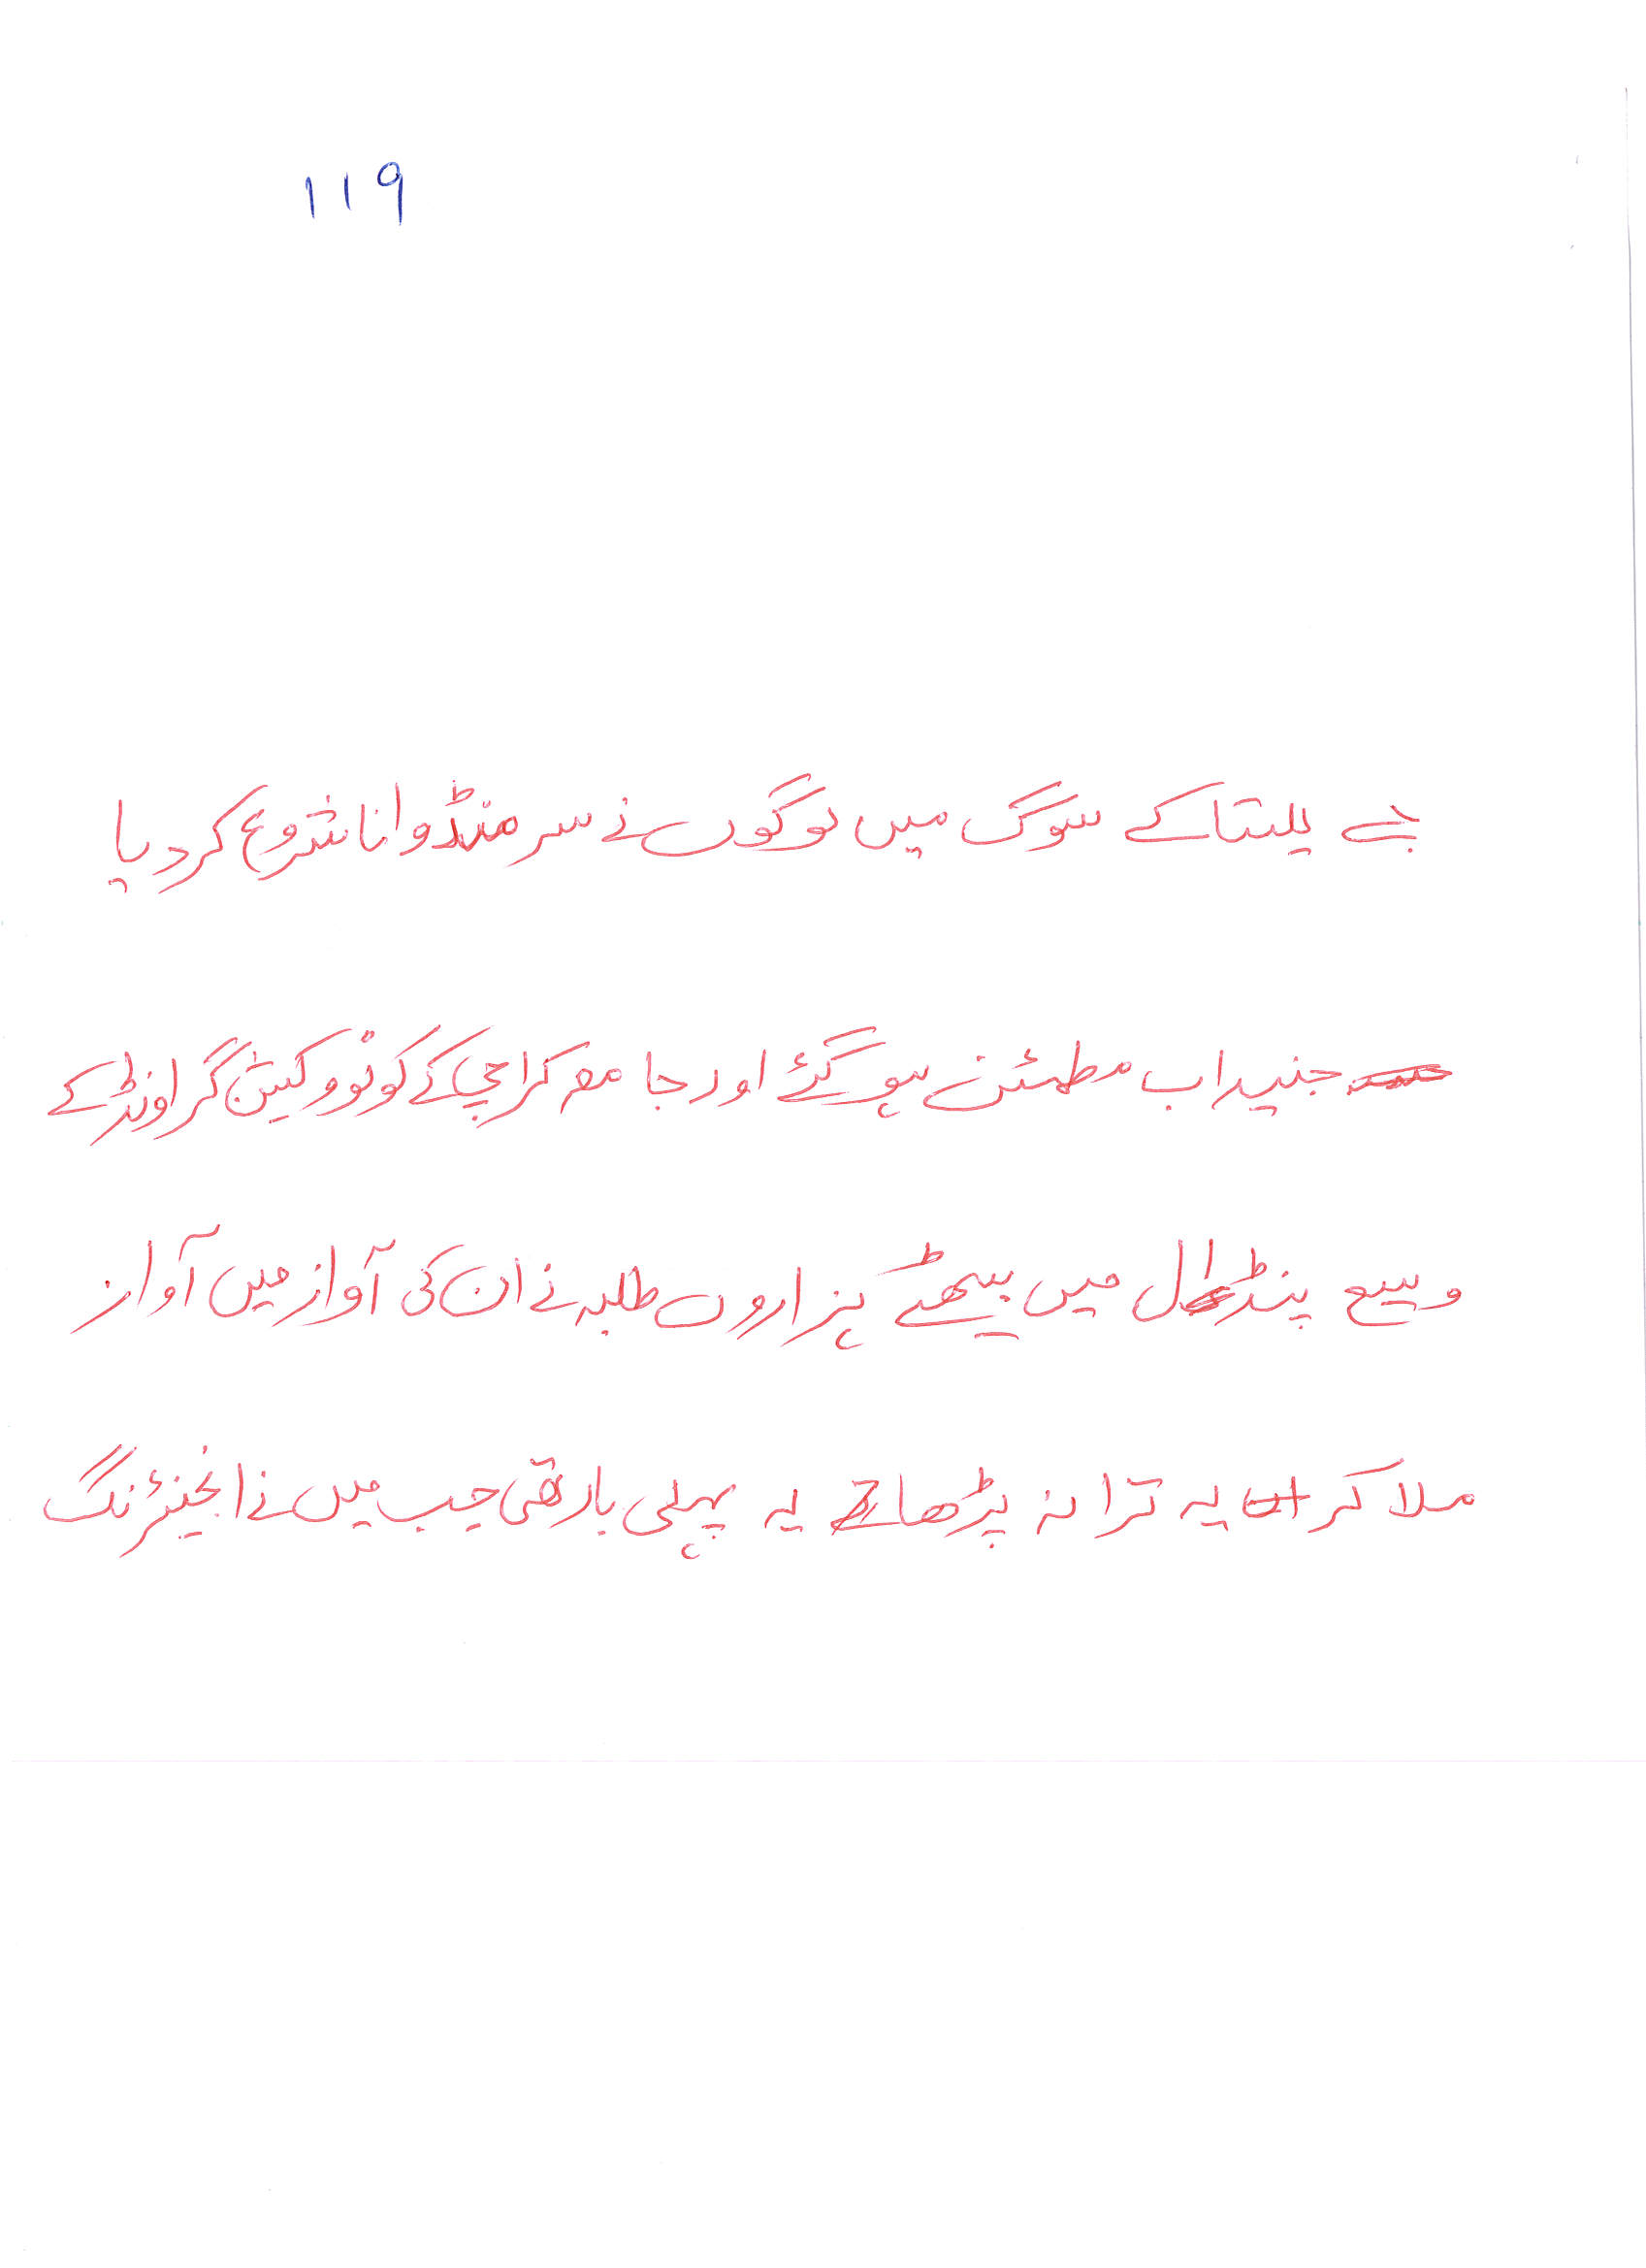 119
جے للیتا کے سوگ میں لوگوں نے سر منڈوانا شروع کر دیا
جنید اب مطمئن ہو گئے اور جامعہ کراچی کے کونووکیشن گراونڈ کے
وسیع پنڈال میں بیٹھے ہزاروں طلبہ نے ان کی آواز میں آواز
ملا کر یہ ترانہ پڑھا یہ پہلی بار تھی جب میں نے انجینئرنگ